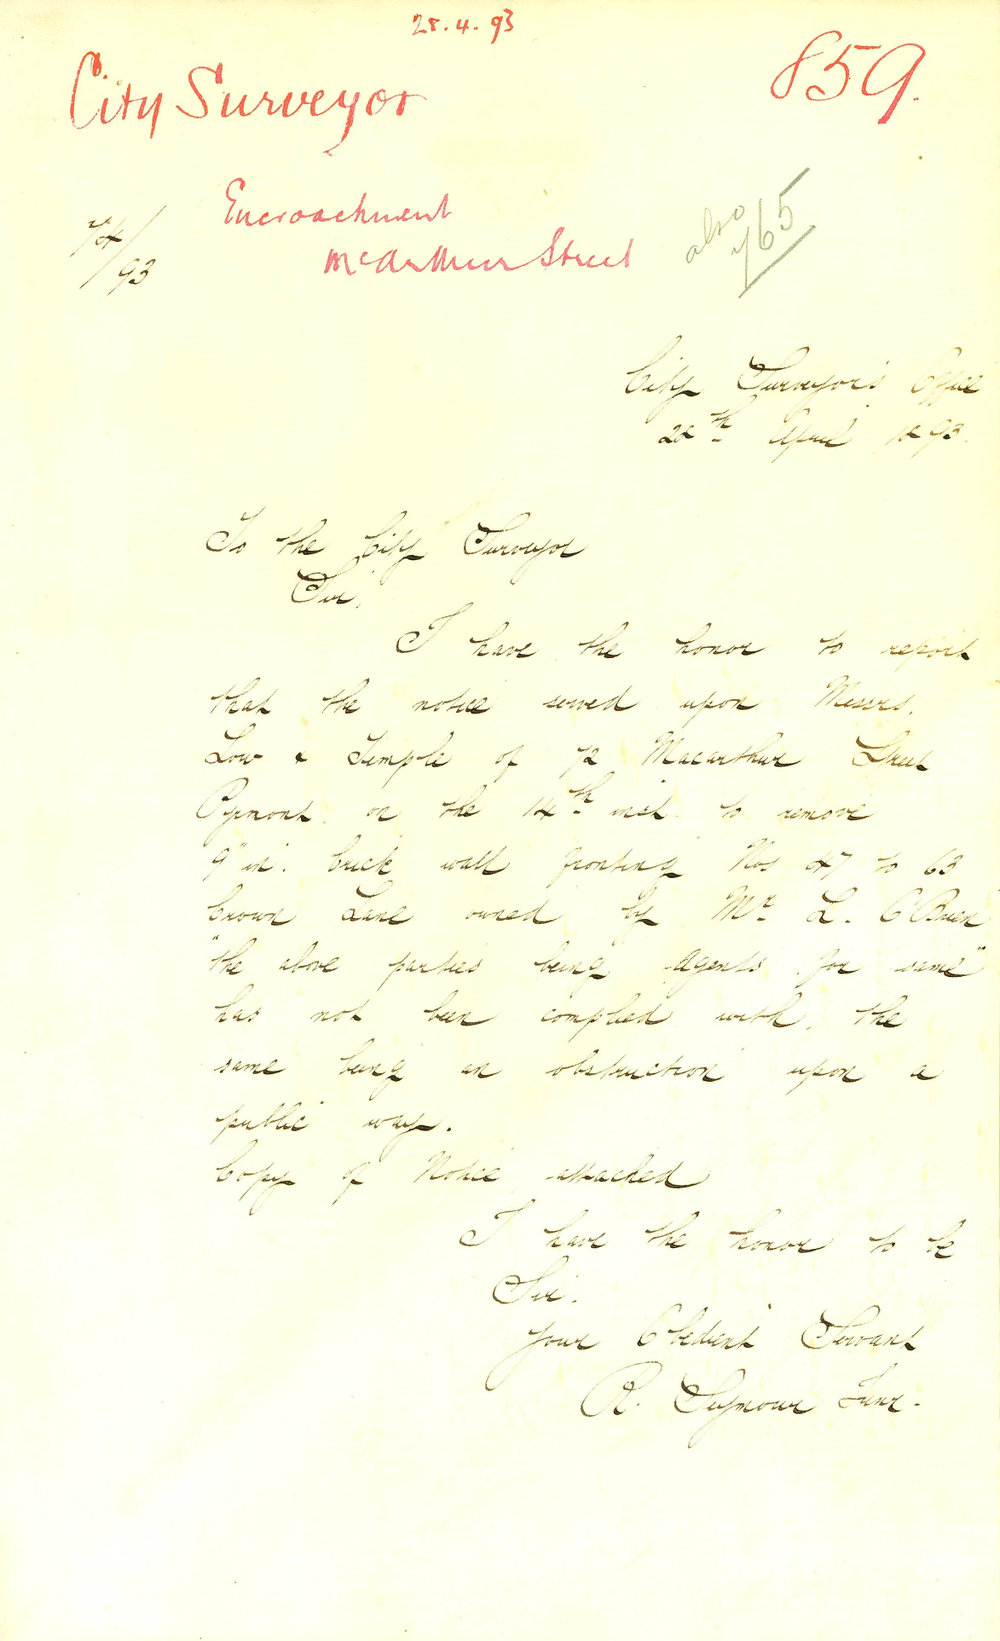 28.4.93
City Surveyor
859.
Encroachment
McArthur Street
also 765
74/93
City Surveyor's Office
28th April 1893.
To the City Surveyor
Sir,
I have the honor to report
that the notice served upon Messrs.
Low & Temple of 72 Macarthur Street
Pyrmont on the 14th inst. to remove
9" in. brick wall fronting Nos 47 to 63
Crown Lane owned by Mr L. O'Brien
"the above parties being agents for same"
has not been complied with, the
same being an obstruction upon a
public way.
Copy of Notice attached
I have the honor to be
Sir.
Your Obedient Servant
R. Seymour Junr.